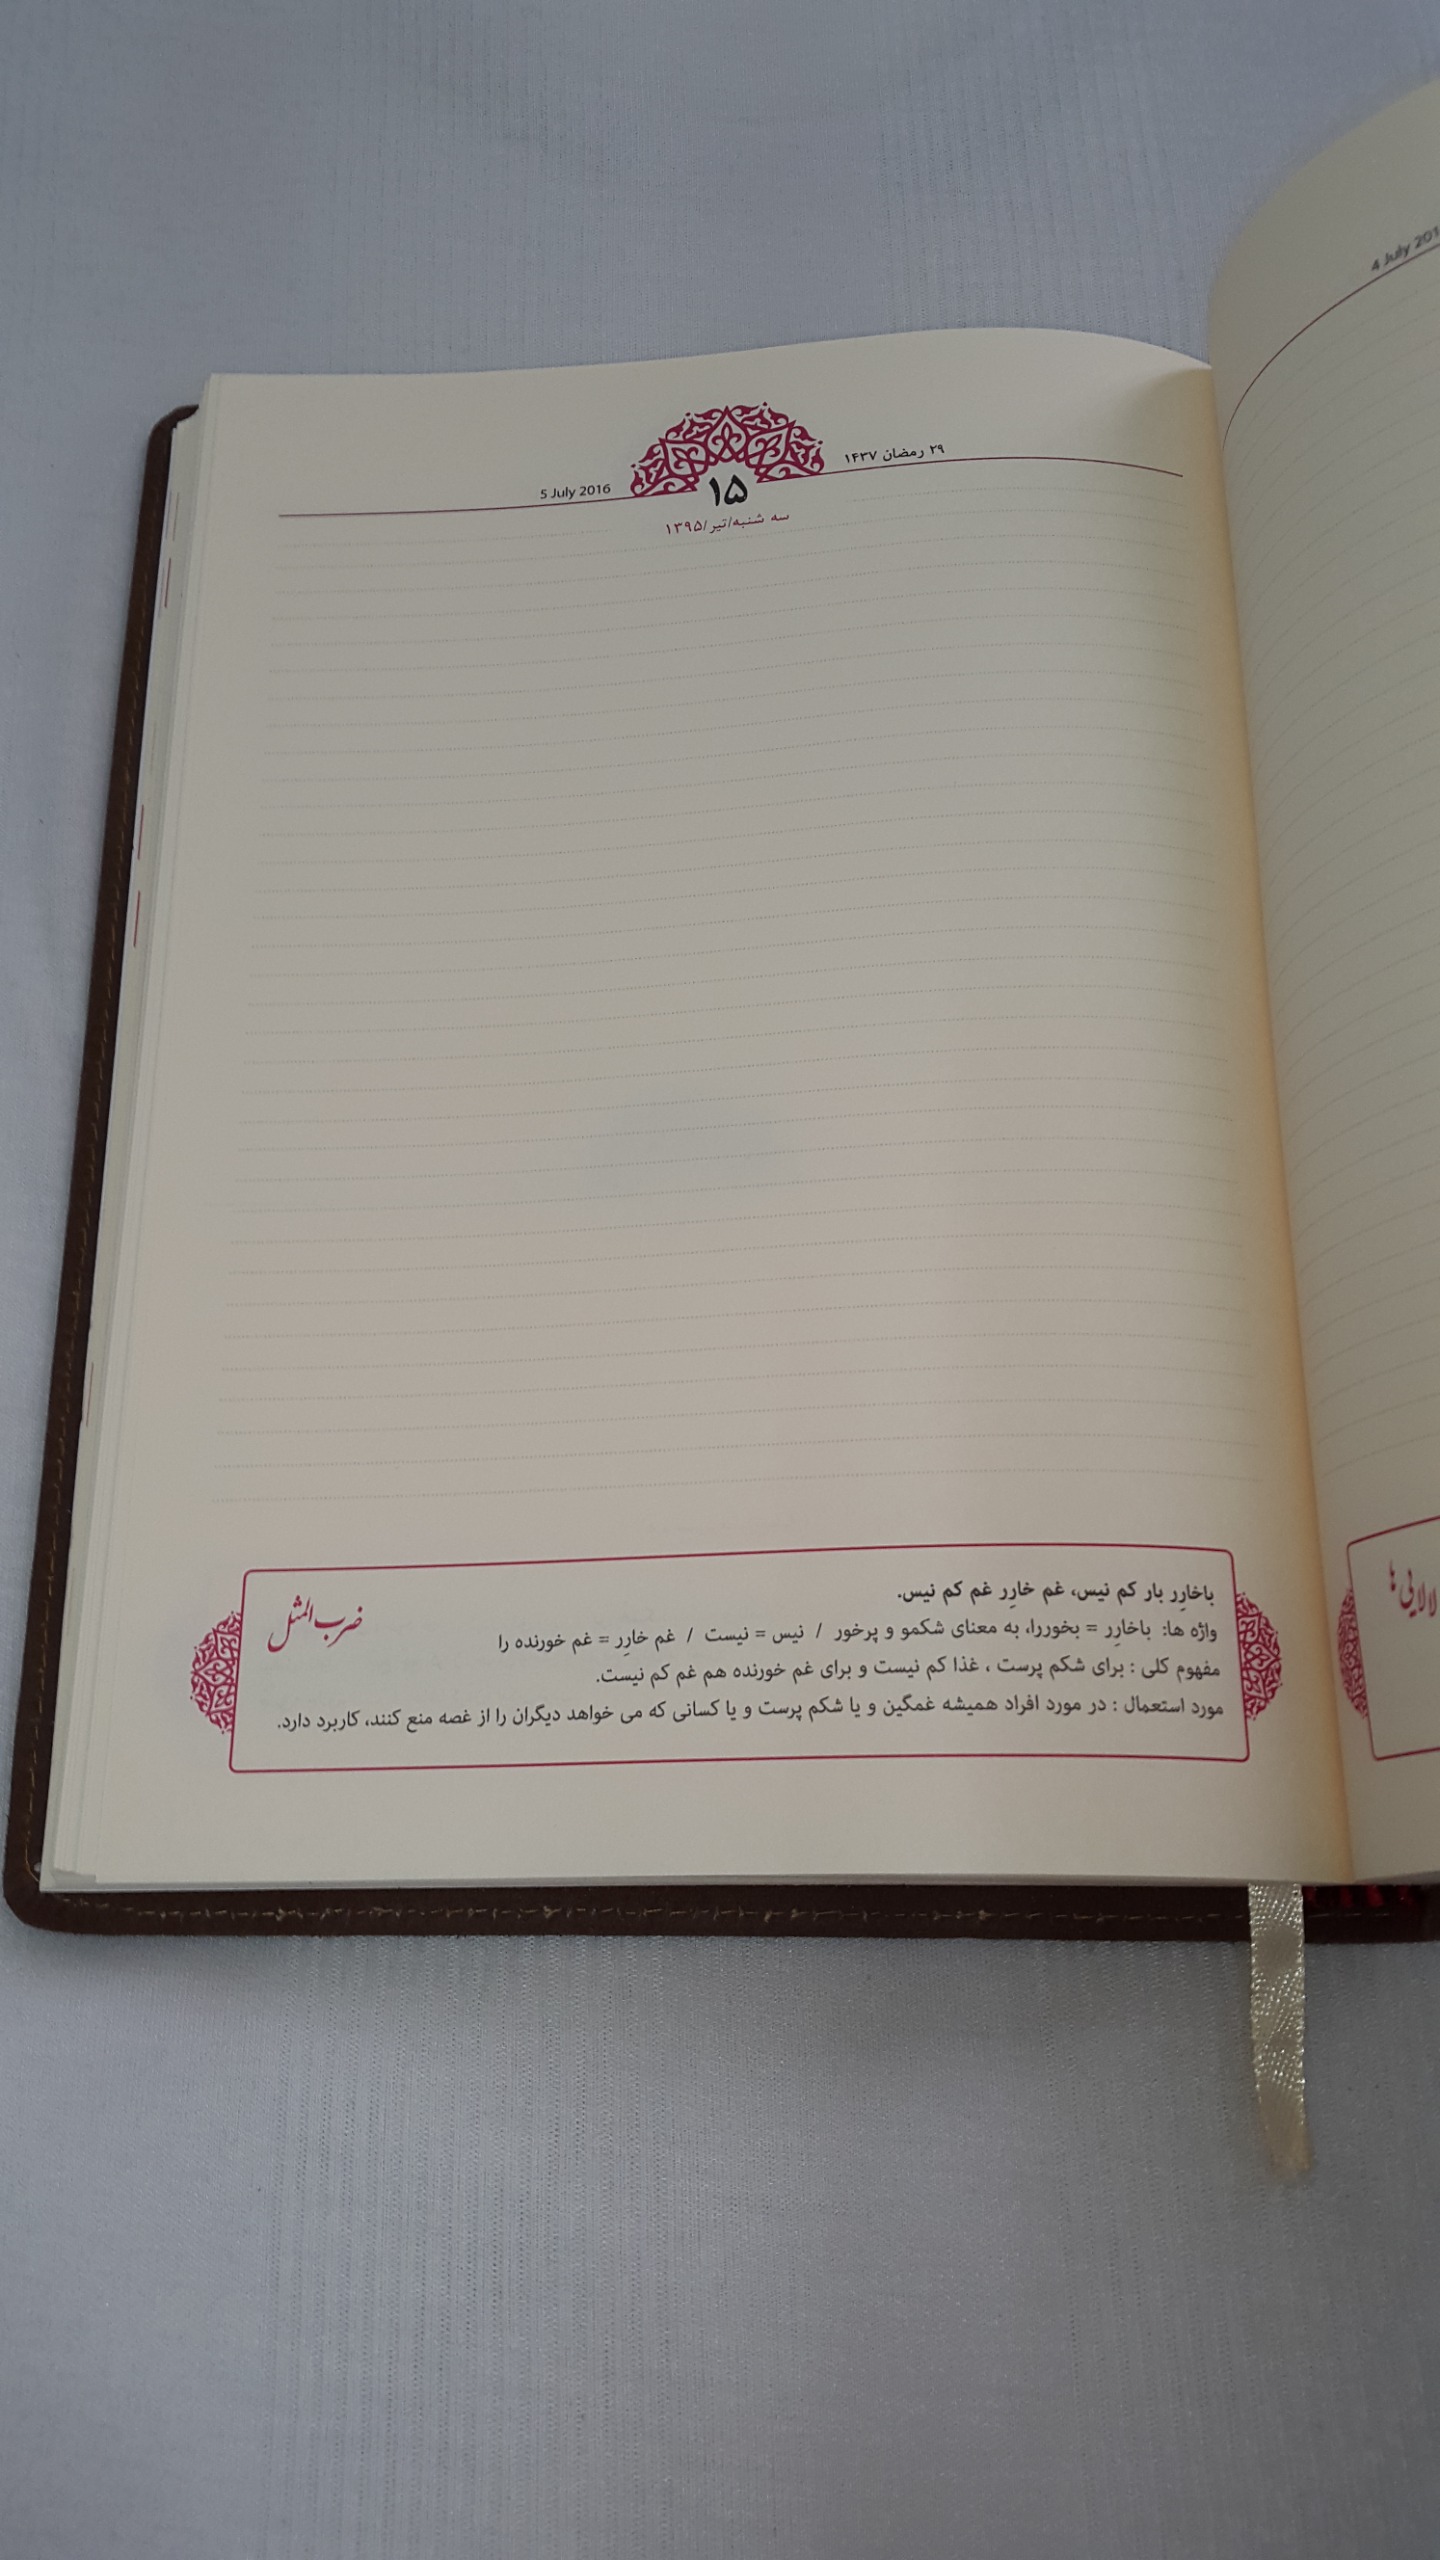 ۲۹ رمضان ۱۴۳۷
۱۵
5 July 2016
سه شنبه/تیر/۱۳۹۵
ضرب المثل
باخارِر بار کم نیس، غم خارِر غم کم نیس.
واژه ها: باخارِر = بخوررا، به معنای شکمو و پرخور / نیس = نیست / غم خارِر = غم خورنده را
مفهوم کلی : برای شکم پرست ، غذا کم نیست و برای غم خورنده هم غم کم نیست.
مورد استعمال : در مورد افراد همیشه غمگین و یا شکم پرست و یا کسانی که می خواهد دیگران را از غصه منع کنند، کاربرد دارد.
4 July 201
لالایی ها